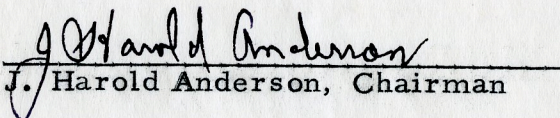 J Harold Anderson
J. Harold Anderson, Chairman